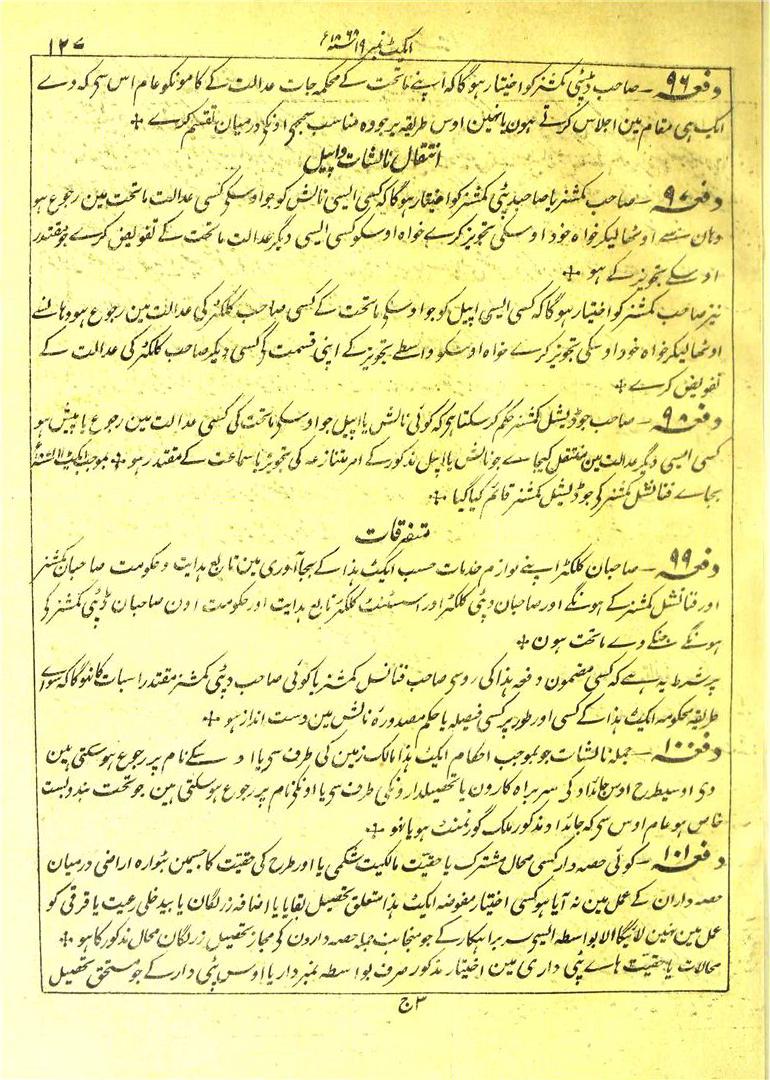 ایکٹ نمبر ۱۹ سنہ ۱۸۶۸ء
۱۲۷
دفعہ ۹۶ — صاحب ڈپٹی کمشنر کو اختیار ہوگا کہ اپنے ماتحت کے محکمہ جات عدالت کے کامونکو عام اس سی کہ وے
ایک ہی مقام مین اجلاس کرتے ہون یا نہین اوس طریقہ پر جو وہ مناسب سمجھی اونکی درمیان تقسیم کرے ✢
انتقال نالشات و اپیل
دفعہ ۹۷ — صاحب کمشنر یا صاحب ڈپٹی کمشنر کو اختیار ہوگا کہ کسی ایسی نالش کو جو اوسکی کسی عدالت ماتحت مین رجوع ہو
وہان سے اوٹھا لیکر خواہ خود اوسکی تجویز کرے خواہ اوسکو کسی ایسی دیگر عدالت ماتحت کے تفویض کرے جو مقتدر
اوسکے تجویز کے ہو ✢
نیز صاحب کمشنر کو اختیار ہوگا کہ کسی ایسی اپیل کو جو اوسکی ماتحت کے کسی صاحب کلکٹر کی عدالت مین رجوع ہو وہانسے
اوٹھا لیکر خواہ خود اوسکی تجویز کرے خواہ اوسکو واسطے تجویز کے اپنی قسمت کی کسی دیگر صاحب کلکٹر کی عدالت کے
تفویض کرے ✢
دفعہ ۹۸ — صاحب جوڈیشل کمشنر حکم کر سکتا ہی کہ کوئی نالش یا اپیل جو اوسکی ماتحت کی کسی عدالت مین رجوع یا پیش ہو
کسی ایسی دیگر عدالت مین منتقل کیجاے جو نالش یا اپیل مذکور کے امر متنازعہ کی تجویز یا سماعت کے مقتدر ہو ✢ بموجب ایکٹ
بجاے فنانشل کمشنر کی جوڈیشل کمشنر قائم کیا گیا ✢
متفرقات
دفعہ ۹۹ — صاحبان کلکٹر اپنے لوازم خدمات حسب ایکٹ ہذا کے بجاآوری مین تابع ہدایت و حکومت صاحبان کمشنر
اور فنانشل کمشنر کے ہونگے اور صاحبان ڈپٹی کلکٹر اور اسسٹنٹ کلکٹر تابع ہدایت اور حکومت اون صاحبان ڈپٹی کمشنر کی
ہونگے جنکے وے ماتحت ہون ✢
پر شرط یہ ہے کہ کسی مضمون دفعہ ہذا کی روسی صاحب فنانسل کمشنر یا کوئی صاحب ڈپٹی کمشنر مقتدر اسبات کا نہوگا کہ سواے
طریقہ محکومہ ایکٹ ہذا کے کسی اور طور پر کسی فیصلہ یا حکم مصدورہ نالش مین دست انداز ہو ✢
دفعہ ۱۰۰ — جملہ نالشات جو بموجب احکام ایکٹ ہذا مالک زمین کی طرف سی یا اوسکے نام پر رجوع ہوسکتی ہین
وی اوسیطرح اوس جائداد کی سربراہ کارون یا تحصیلدارونکی طرف سی یا اونکی نام پر رجوع ہوسکتی ہین جو تحت بندوبست
خاص ہو عام اوس سی کہ جائداد مذکور ملک گورنمنٹ ہو یا نہو ✢
دفعہ ۱۰۱ — کوئی حصہ دار کسی محال مشترک یا حقیت مالکیت شکمی یا اور طرح کی حقیت کا جسمین بٹوارہ اراضی درمیان
حصہ داران کے عمل مین نہ آیا ہو کسی اختیار مفوضہ ایکٹ ہذا متعلق تحصیل بقایا یا اضافہ زر لگان یا بیدخلی رعیت یا قرقی کو
عمل مین نہین لائیگا الا بواسطہ ایسی سربراہکار کے جو منجانب جملہ حصہ دارون کی مجاز تحصیل زر لگان محال مذکور کا ہو ✢
محالات یا حقیت ہاے پٹی داری مین اختیار مذکور صرف بواسطہ نمبردار یا اوس پٹی دار کے جو مستحق تحصیل
ج ۳